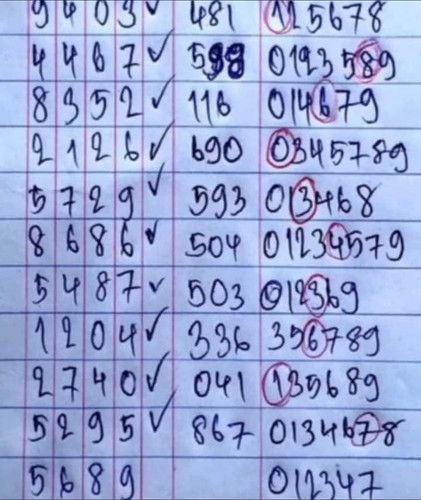 9 4 0 3 ✓ 481 1125678
4 4 6 7 ✓ 598 0123589
8 3 5 2 ✓ 116 014679
2 1 2 6 ✓ 690 0345789
5 7 2 9 ✓ 593 013468
8 6 8 6 ✓ 504 01234579
5 4 8 7 ✓ 503 012369
1 2 0 4 ✓ 336 356789
2 7 4 0 ✓ 041 135689
5 2 9 5 ✓ 867 0134678
5 6 8 9 012347